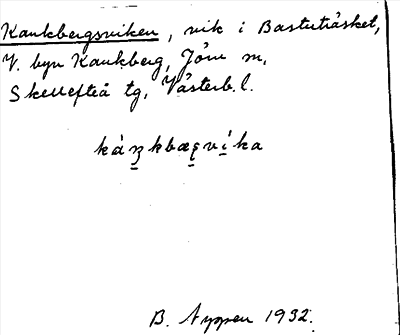 Kankbergsviken, vik i Bastuträsket,
V. byn Kankberg, Jörn sn,
Skellefteå tg, Västerb. l.
B. Nyppen 1932.